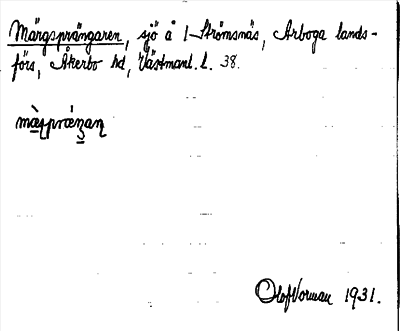 Märgsprängaren, sjö å 1 Strömsnäs, Arboga lands-
förs, Åkerbo hd, Västmanl. l. 38.
Olof Vorman 1931.